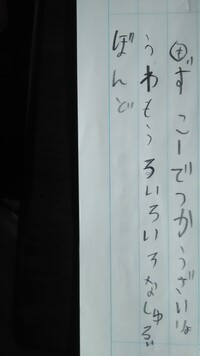 ず こーでつかうざいりょ
うわもうるいろいろなしゅるい
ぼんど